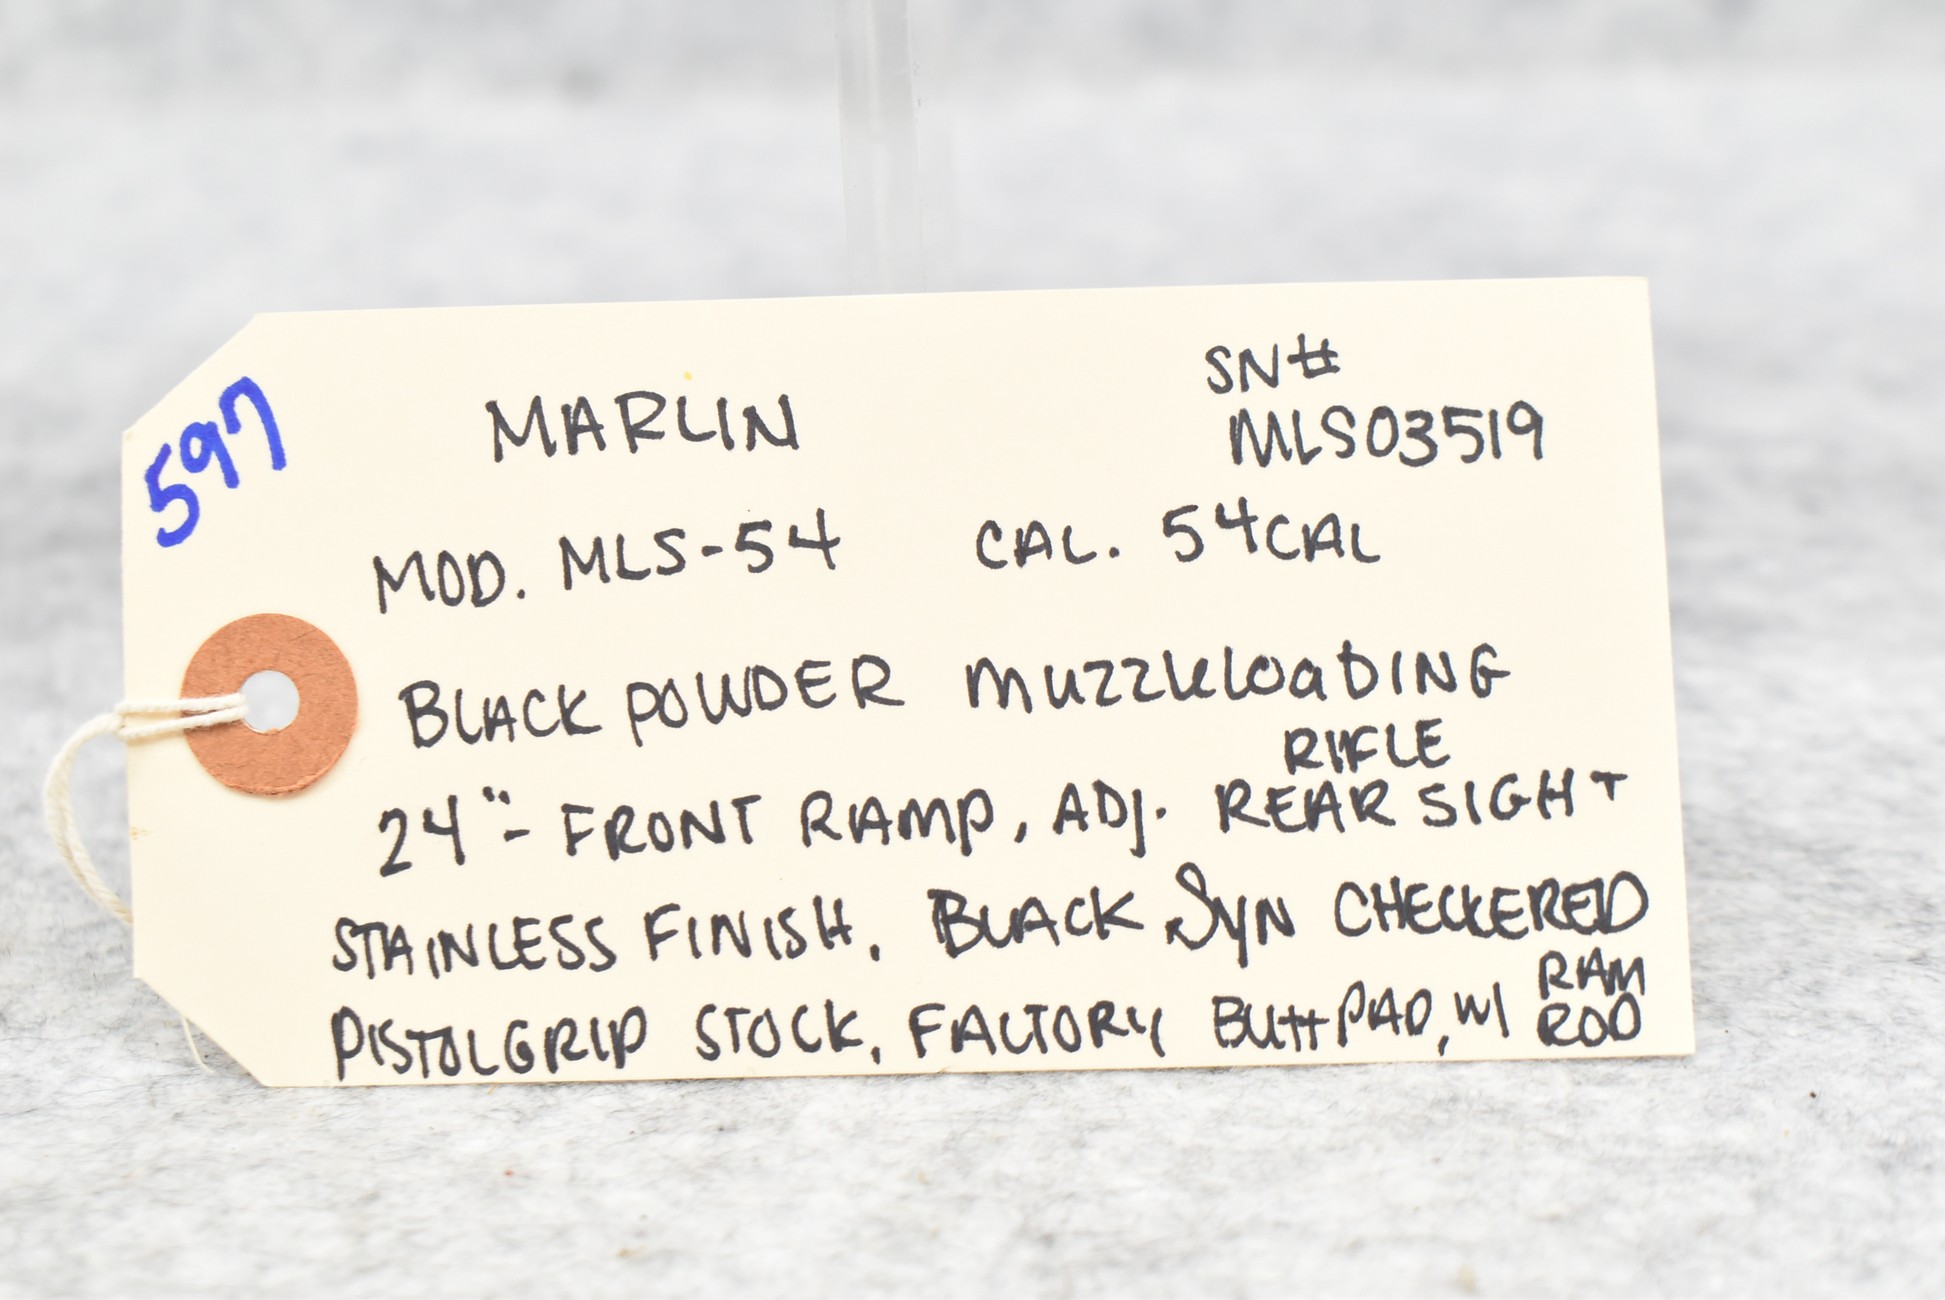 597
MARLIN
SN#
MLS03519
MOD. MLS-54 CAL. 54CAL
BLACK POWDER MUZZLELOADING
RIFLE
24"- FRONT RAMP, ADJ. REAR SIGHT
STAINLESS FINISH, BLACK SYN CHECKERED
PISTOLGRIP STOCK, FACTORY BUTTPAD, W/ RAM
ROD